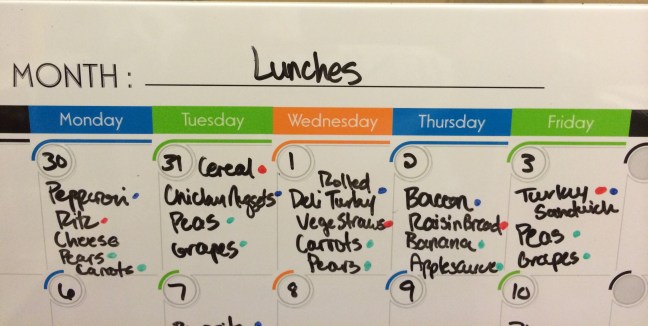 MONTH: Lunches
Monday Tuesday Wednesday Thursday Friday
30
Pepperoni
Ritz
Cheese
Pears
Carrots
31 Cereal
Chicken Nuggets
Peas
Grapes
1
Rolled
Deli Turkey
Vege Straws
Carrots
Pears
2
Bacon
Raisin Bread
Banana
Applesauce
3
Turkey
Sandwich
Peas
Grapes
6 7 8 9 10